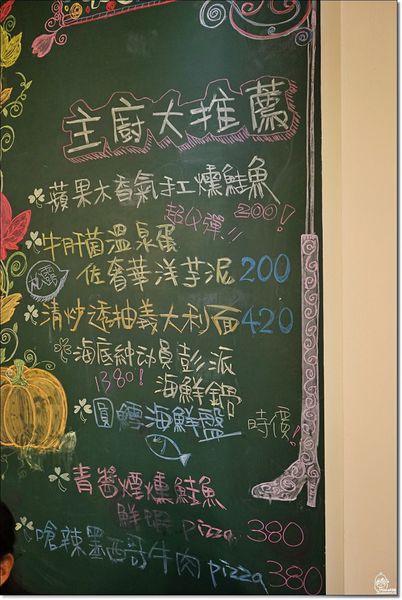 主廚大推薦
蘋果木香氣手工燻鮭魚
超Q彈!! 200!
牛肝菌溫泉蛋
佐奢華洋芋泥 200
清炒透抽義大利面 420
海底總动員彭派
1380! 海鮮鍋
圓鱈海鮮盤 時價!
青醬煙燻鮭魚
鮮蝦 pizza 380
嗆辣墨西哥牛肉 pizza 380